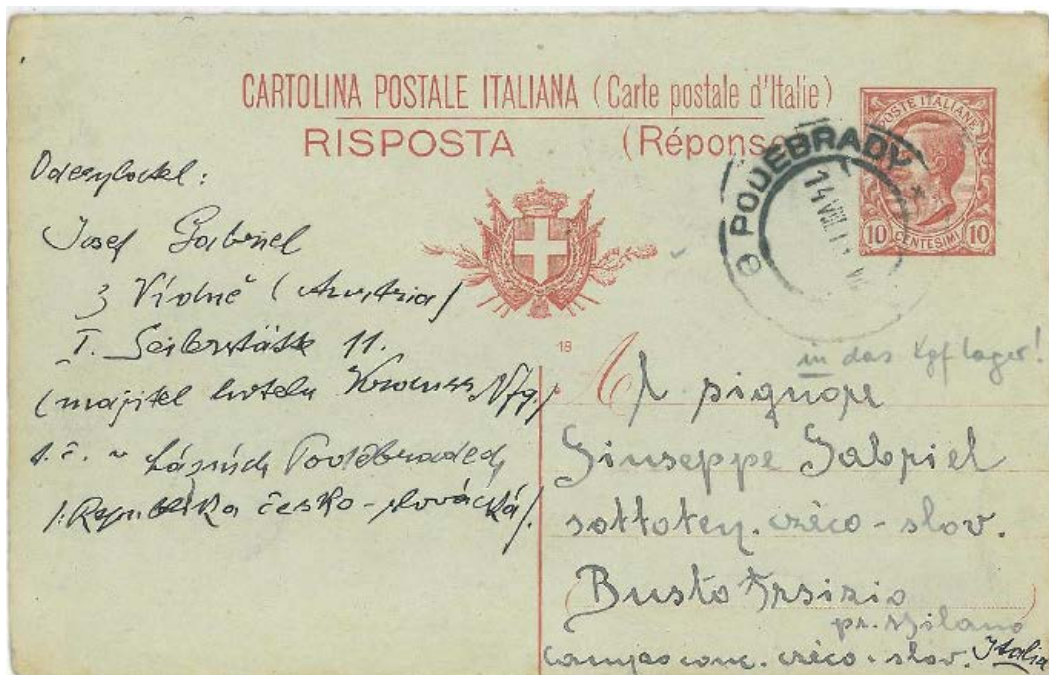 CARTOLINA POSTALE ITALIANA (Carte postale d'Italie)
RISPOSTA (Réponse)
POSTE ITALIANE
10 CENTESIMI 10
PODĚBRADY
14 VIII
Odesylatel:
Josef Gabriel
z Vídně (Austria)
I. Seilerstätte 11.
(majitel hotelu Krauss Nfg.)
t. č. v Lázních Poděbradech
(: Republika česko-slovácká).
18
in das Kgf lager!
Al signore
Giuseppe Gabriel
sottoten. czèco-slov.
Busto Arsizio
pr. Milano
campo conc. czèco-slov. Italia